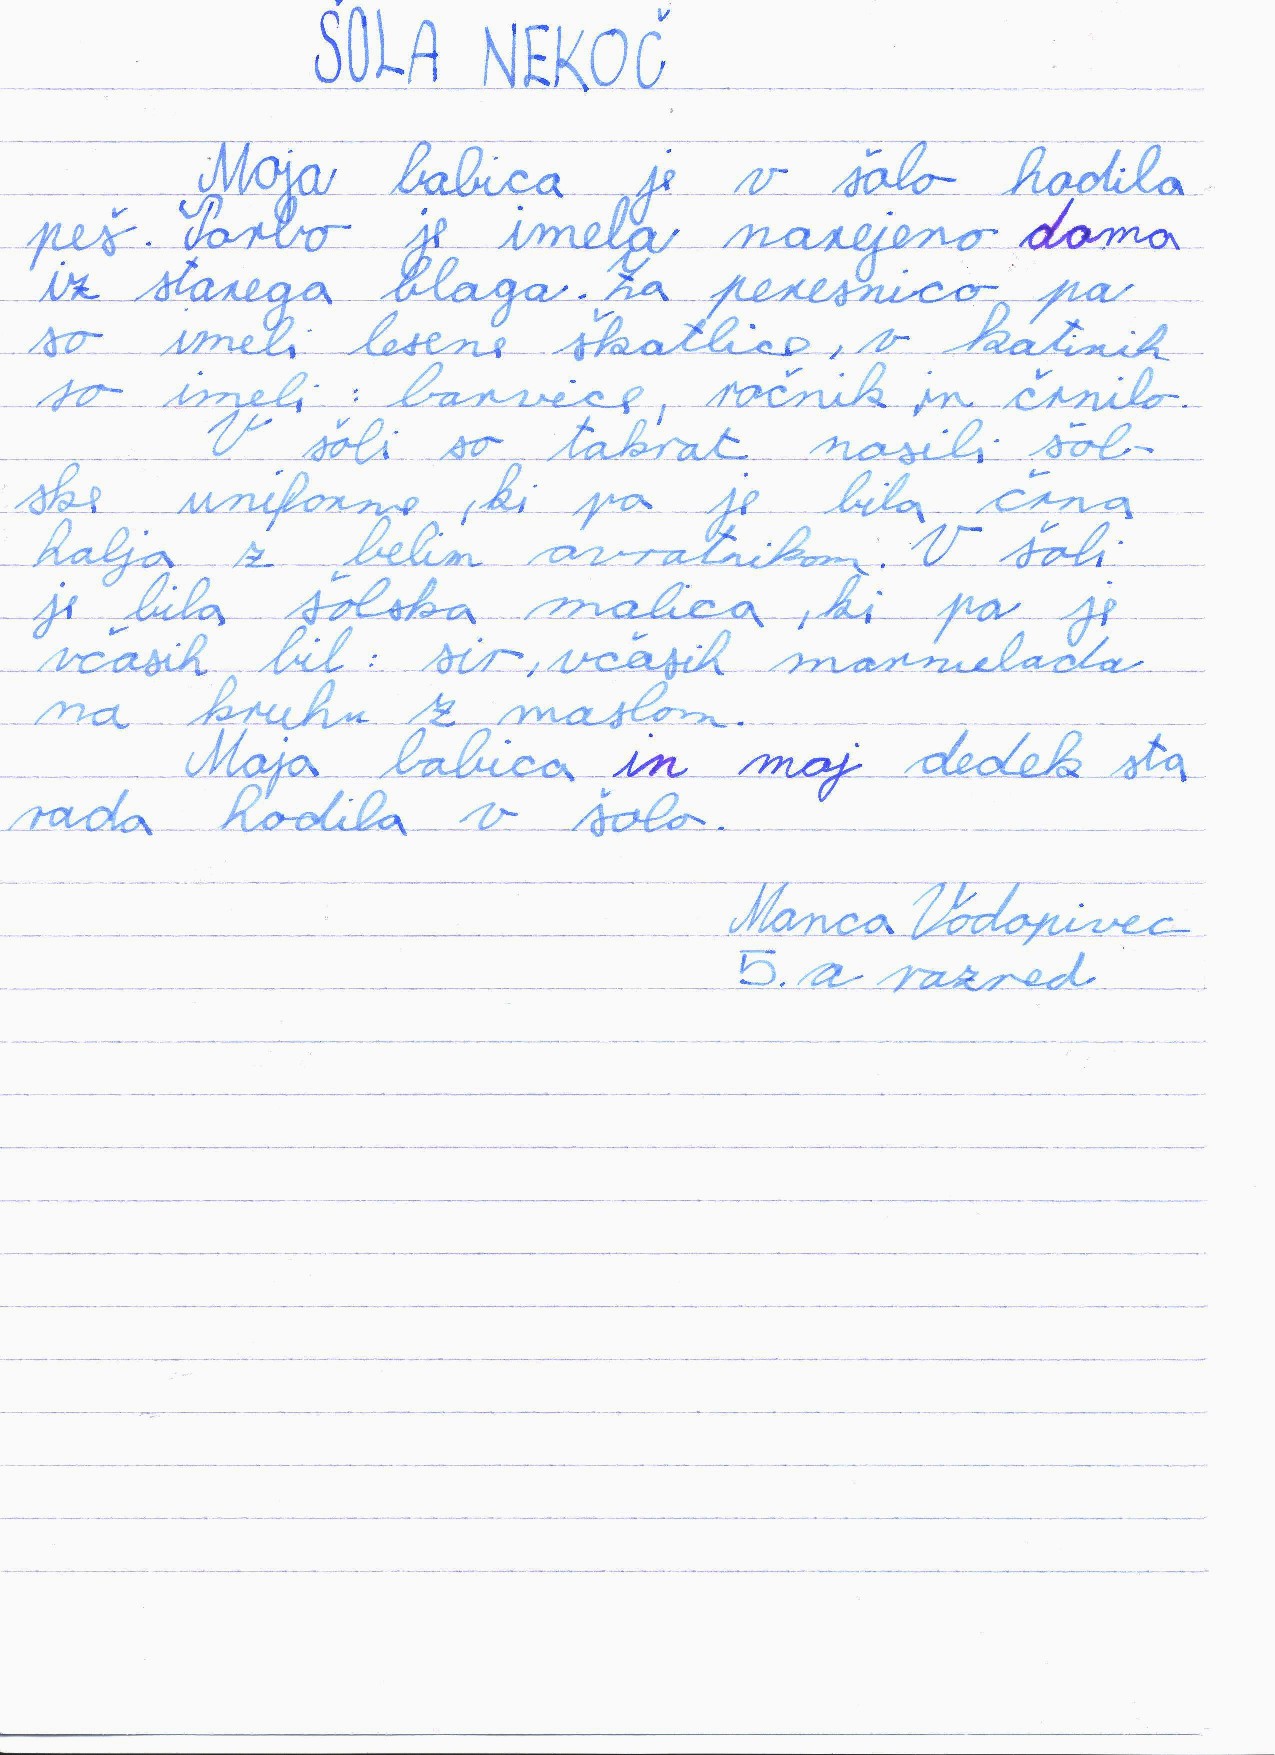 ŠOLA NEKOČ
Moja babica je v šolo hodila
peš. Torbo je imela narejeno doma
iz starega blaga. Za peresnico pa
so imeli lesene škatlice, v katirih
so imeli: barvice, ročnik in črnilo.
V šoli so takrat nosili šol-
ske uniforme, ki pa je bila črna
halja z belim ovratnikom. V šoli
je bila šolska malica, ki pa je
včasih bil: sir, včasih marmelada
na kruhu z maslom.
Moja babica in moj dedek sta
rada hodila v šolo.
Manca Vodopivec
5. a razred